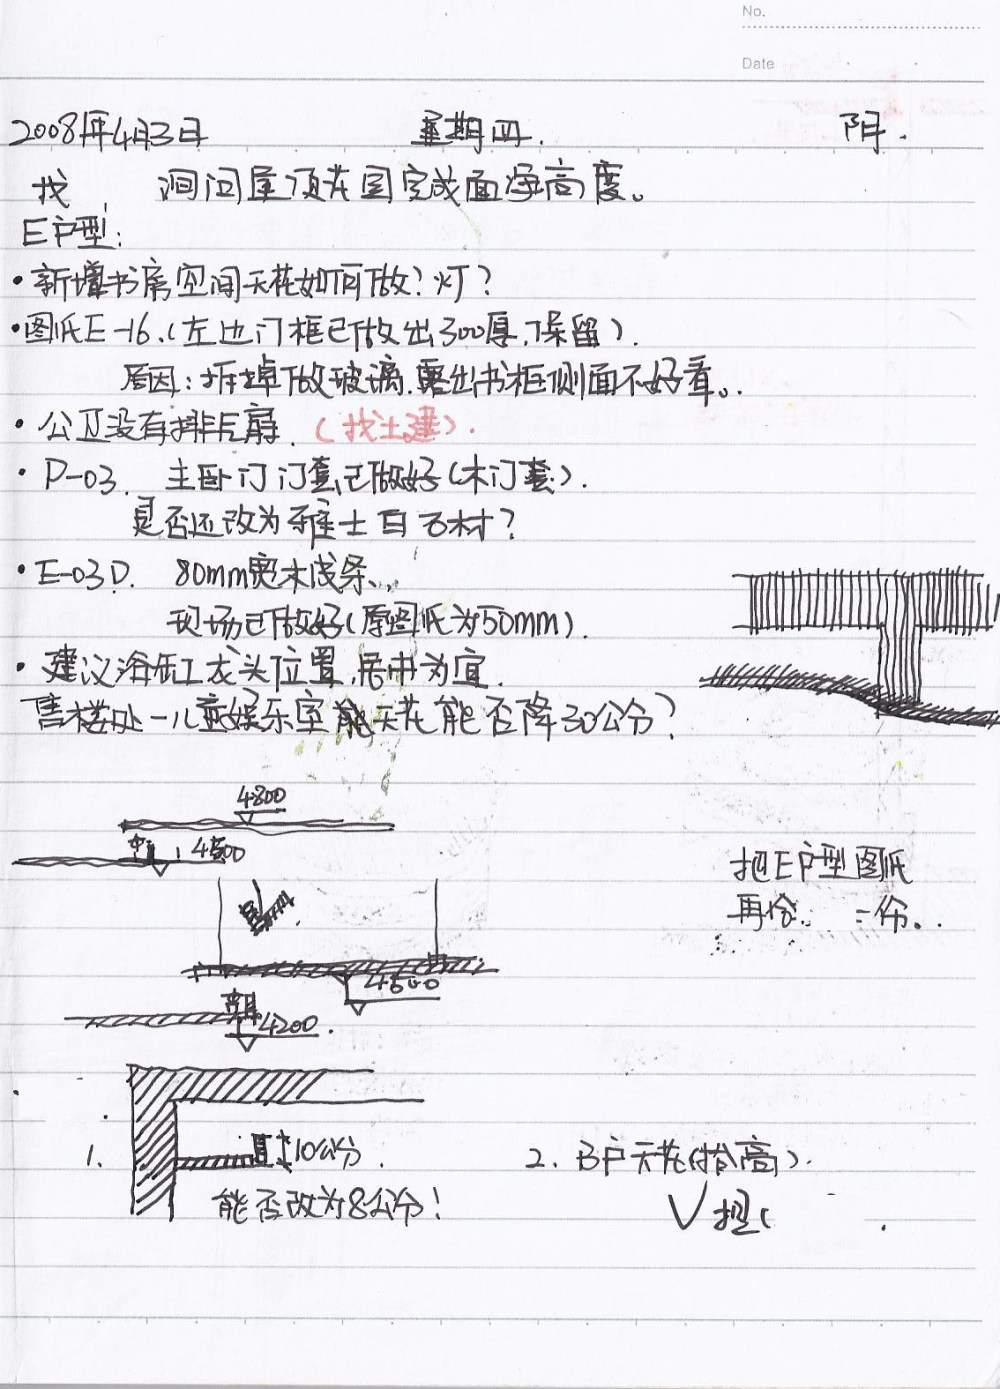 No.
Date
2008年4月3日 星期四. 阴.
找 洞问屋顶花园完成面净高度。
E户型:
·新增书房空间天花如何做?灯?
·图纸E-16.(左边门框已做出300厚,保留).
原因:拆掉做玻璃.露出书柜侧面不好看。
·公卫没有排气扇.(找土建).
·P-03. 主卧门门套已做好(木门套).
是否还改为雅士白石材?
·E-03D. 80mm宽木线条.
现场已做好(原图纸为50mm).
·建议浴缸龙头位置.居中为宜.
售楼处-儿童娱乐室天花能否降30公分?
4800
4500
把E户型图纸
再给. 一份.
4500
4200.
1. 10公分.
能否改为8公分!
2. B户天花(抬高).